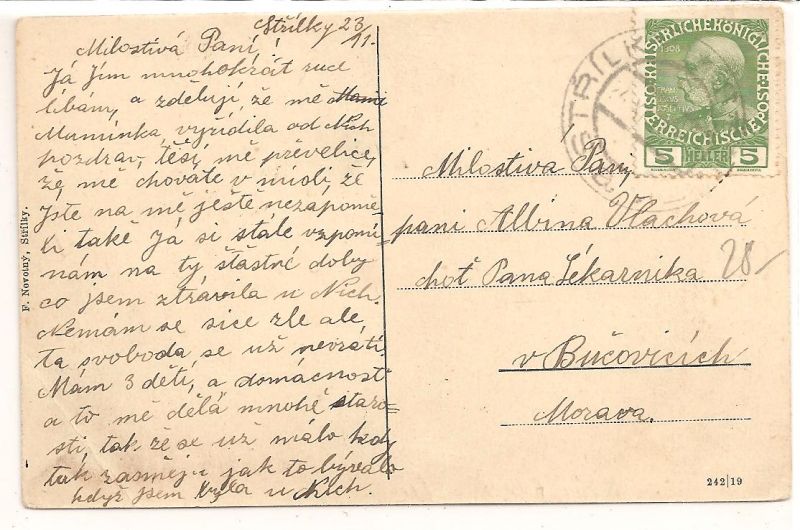 Střílky 23
11.
Milostivá Paní!
Já Jim mnohokrát ruce
líbám, a zděluji, že mě
Maminka vyřídila od Nich
pozdrav, těší mě převelice,
že mě chováte v mysli, že
Jste na mě ještě nezapomě-
li také Já si stále vzpomí-
nám na ty šťastné doby
co jsem ztrávila u Nich.
Nemám se sice zle ale
ta svoboda se už nevrátí.
Mám 3 děti, a domácnosť
a to mě dělá mnohé staro=
sti, tak že se už málo kdy
tak zasměju jak to bývalo
když jsem byla u Nich.
F. Novotný, Střílky.
KAISERLICHE KÖNIGLICHE ÖSTERREICHISCHE POST
1908
FRANZ JOSEF I
5 HELLER 5
STŘÍLK
Milostivá Paní,
pani Albina Vlachová
choť Pana Lékarnika
28/-
v Bučovicích
Morava.
242|19